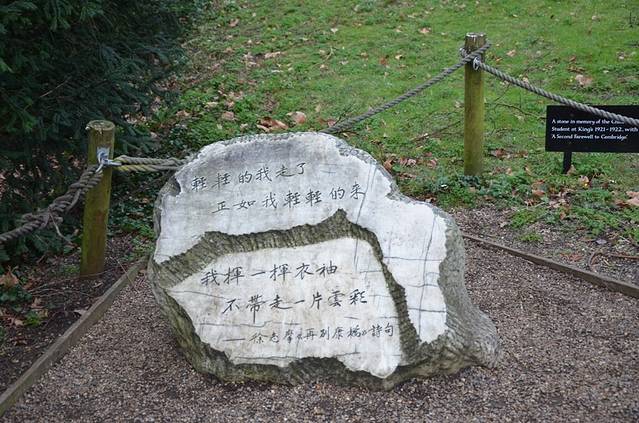 輕輕的我走了
正如我輕輕的來
我揮一揮衣袖
不帶走一片雲彩
——徐志摩《再別康橋》詩句
A stone in memory of the
Student at King's 1921 - 1922, with
'A Second farewell to Cambridge'